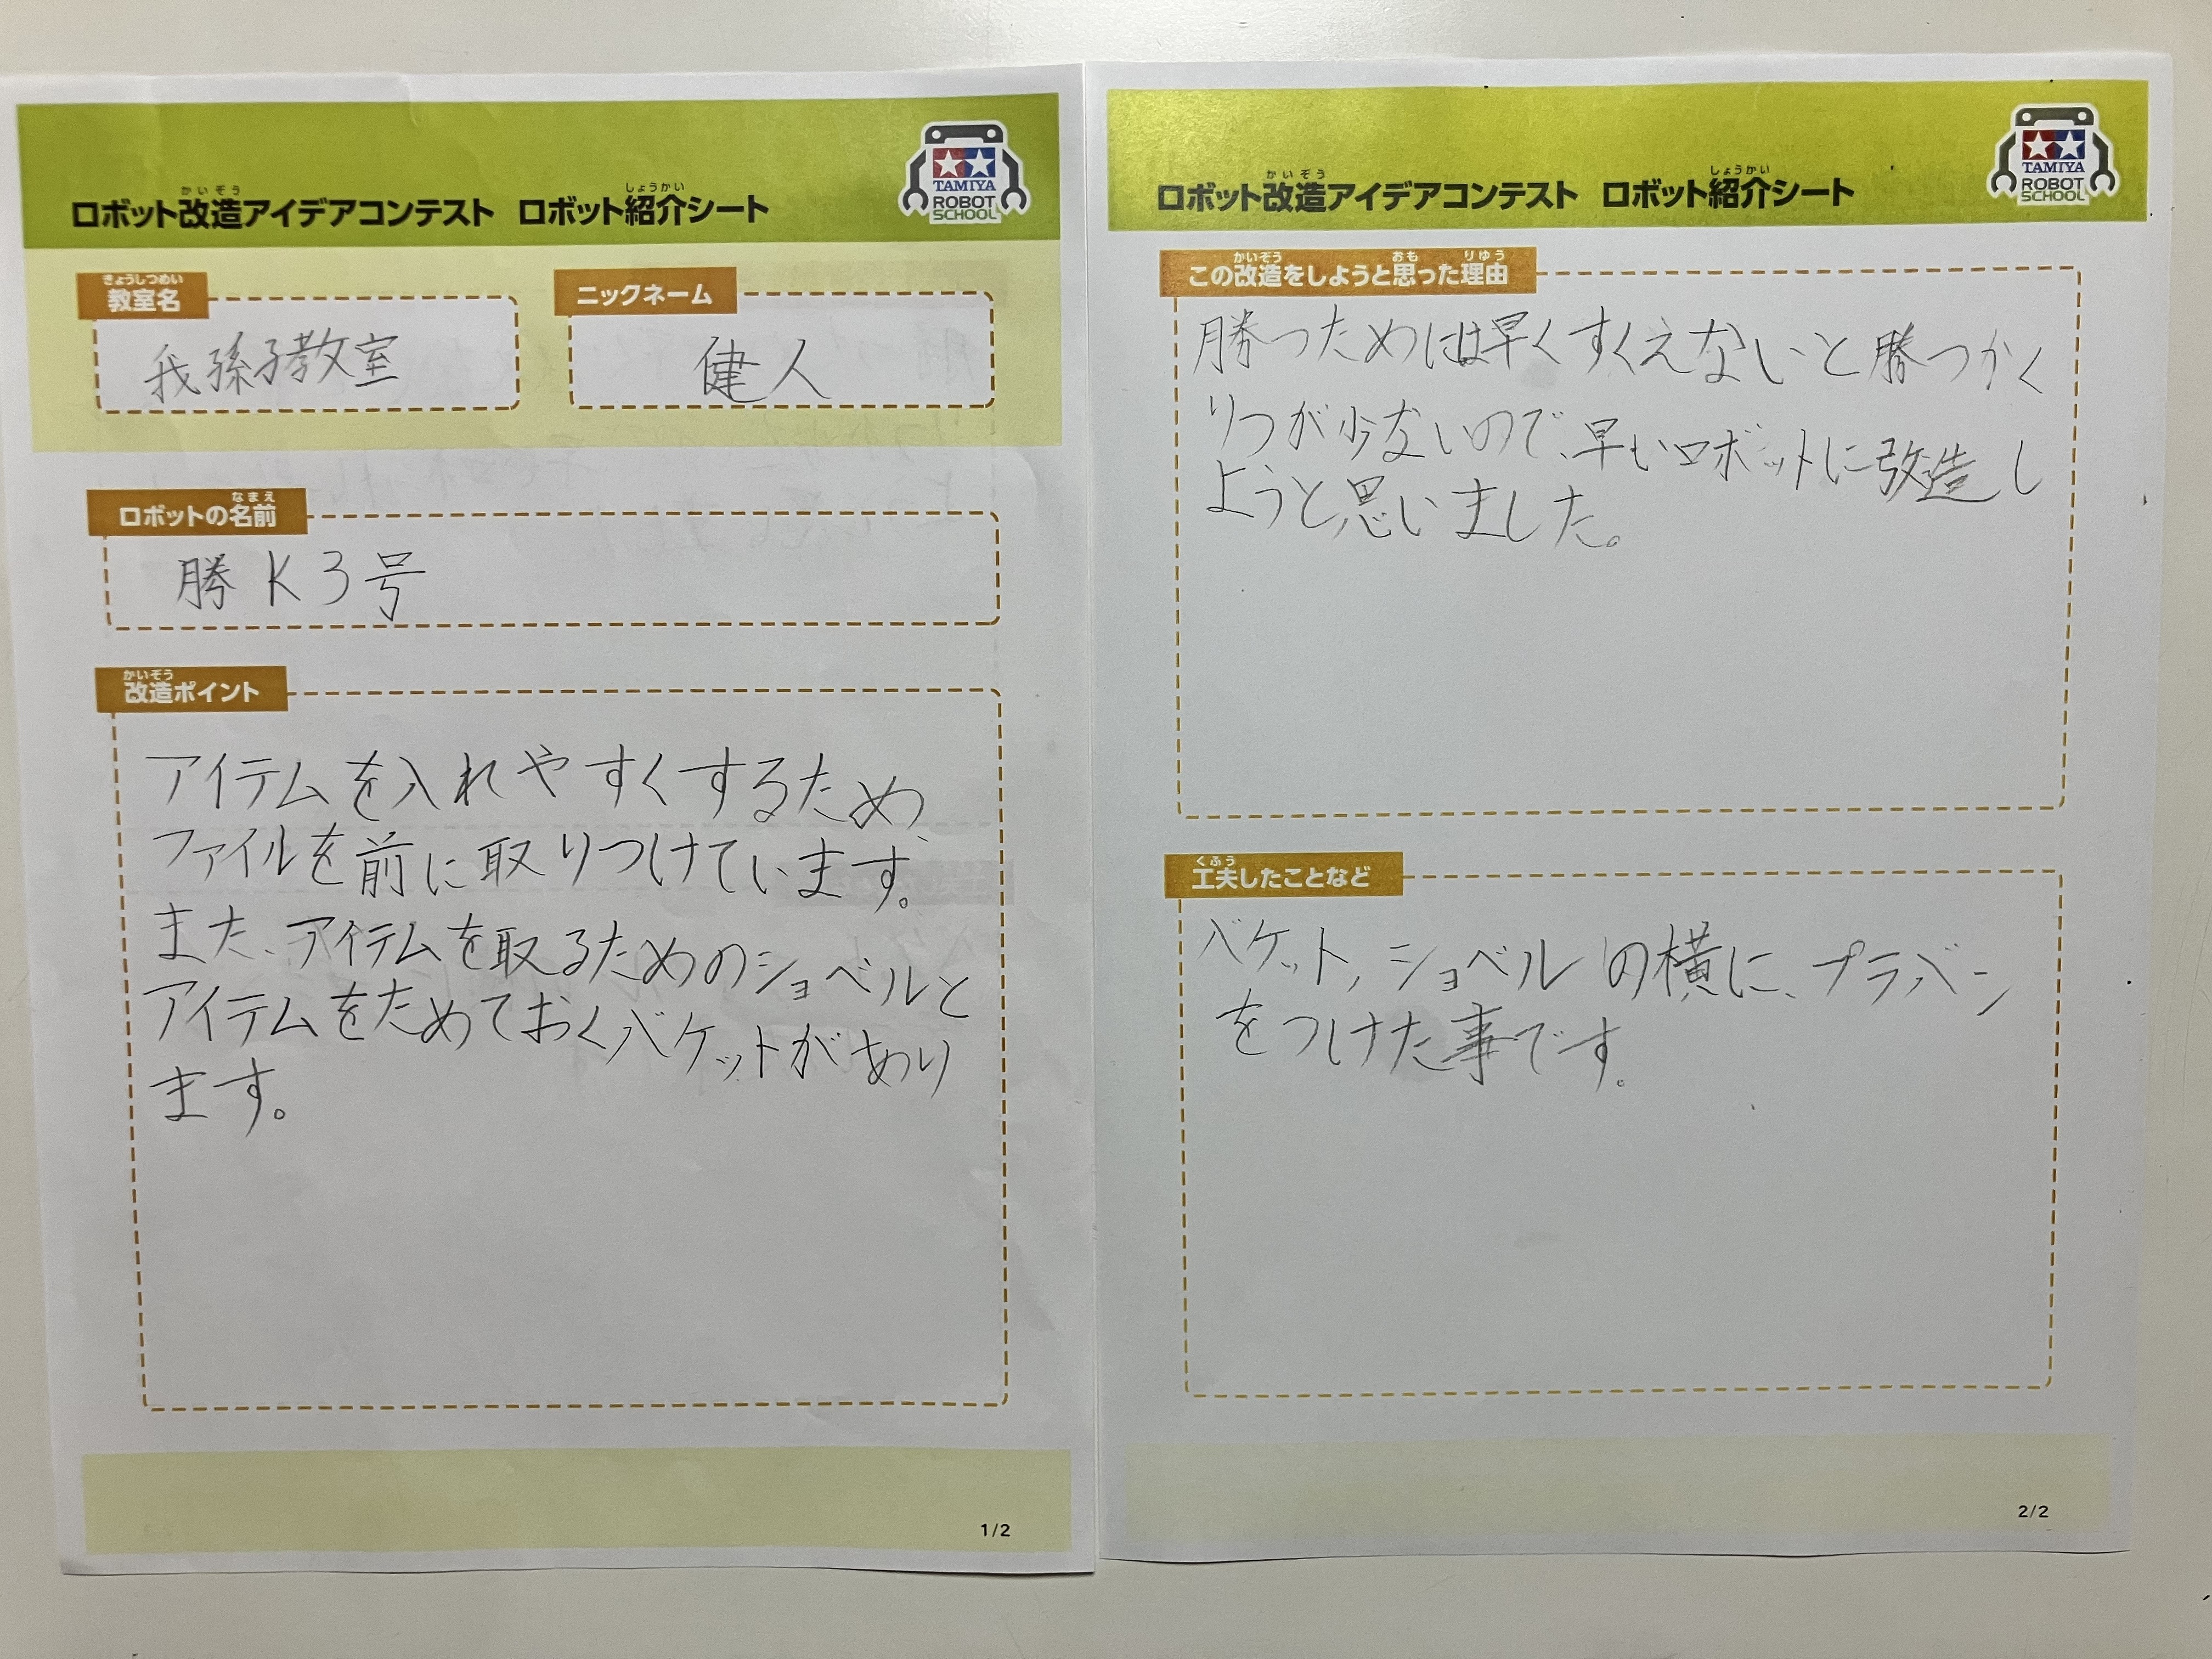 かいぞう しょうかい
ロボット改造アイデアコンテスト ロボット紹介シート
TAMIYA
ROBOT
SCHOOL
きょうしつめい
教室名
我孫子教室
ニックネーム
健人
なまえ
ロボットの名前
勝K3号
かいぞう
改造ポイント
アイテムを入れやすくするため、
ファイルを前に取りつけています。
また、アイテムを取るためのショベルと
アイテムをためておくバケットがあり
ます。
1/2
かいぞう しょうかい
ロボット改造アイデアコンテスト ロボット紹介シート
TAMIYA
ROBOT
SCHOOL
かいぞう おも りゆう
この改造をしようと思った理由
勝つためには早くすくえないと勝つかく
りつが少ないので、早いロボットに改造し
ようと思いました。
くふう
工夫したことなど
バケット,ショベルの横に、プラバン
をつけた事です。
2/2